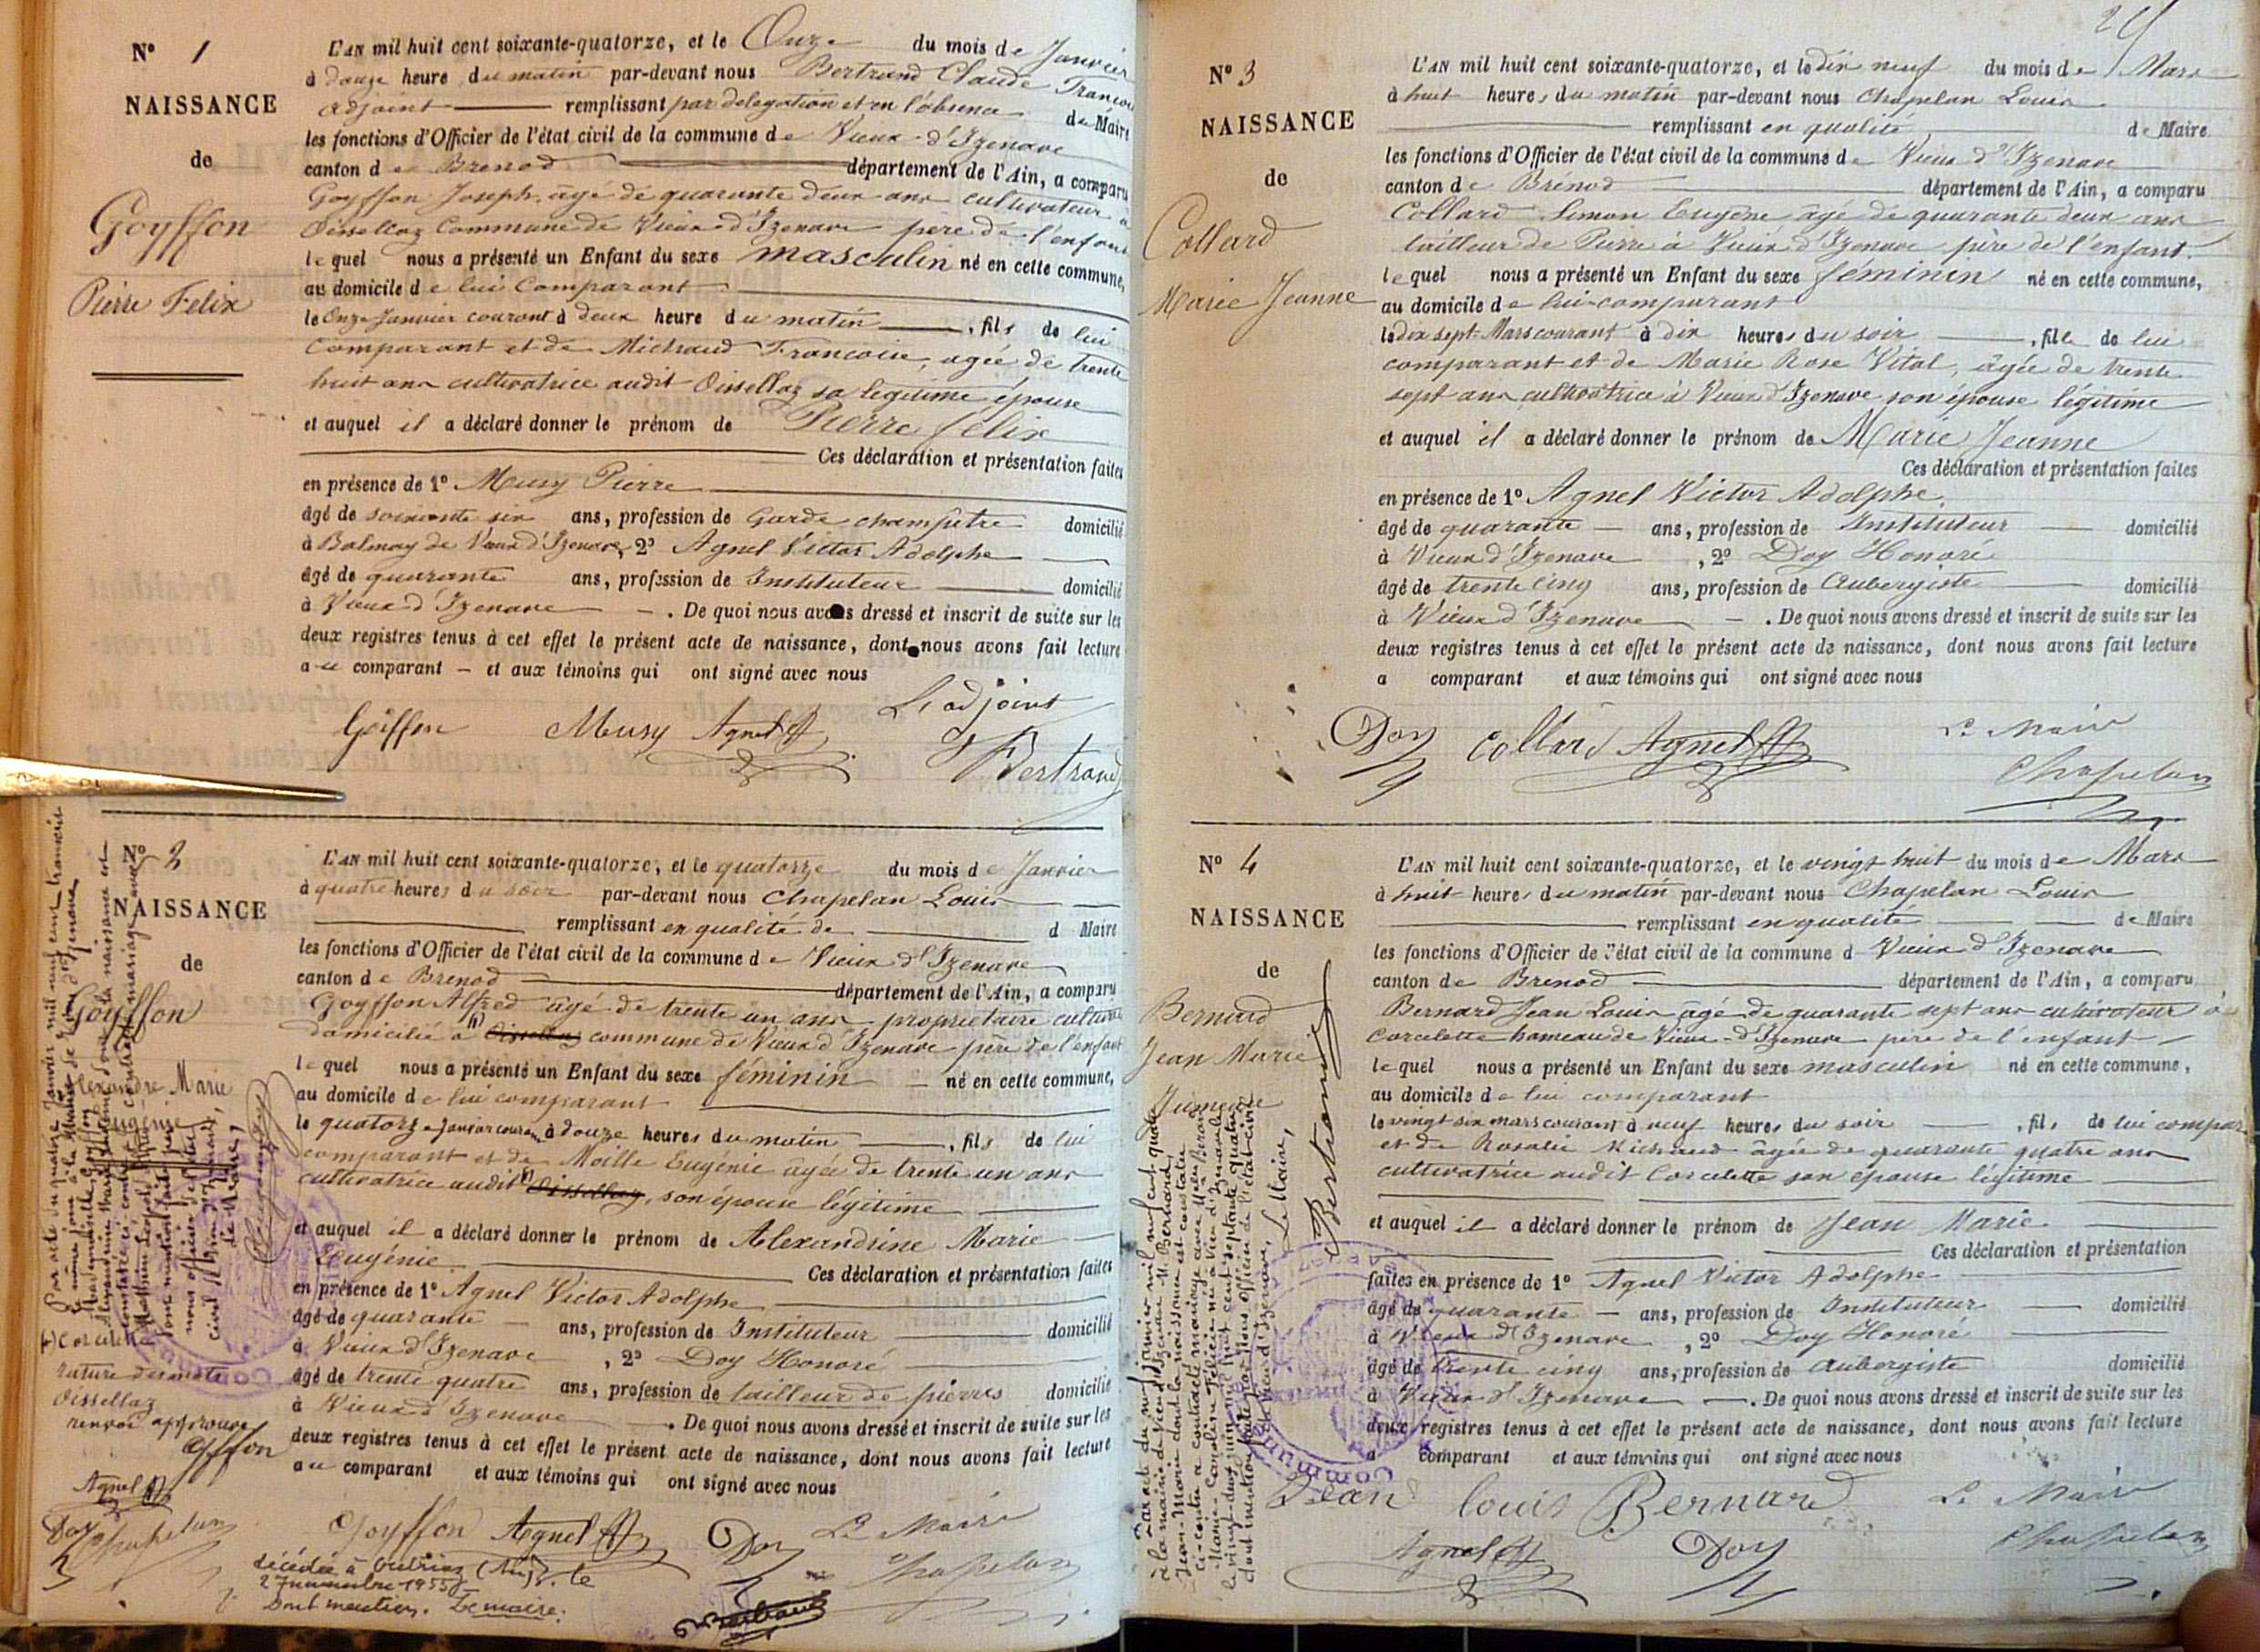 N° 1
NAISSANCE
de
Goyffon
Pierre Felix
L'AN mil huit cent soixante-quatorze, et le Onze du mois de Janvier
à douze heure du matin par-devant nous Bertrand Claude François
adjoint remplissant par delegation et en l'absence du Maire
les fonctions d'Officier de l'état civil de la commune de Vieux-d'Izenave
canton de Brenod département de l'Ain, a comparu
Goyffon Joseph, agé de quarante deux ans cultivateur à
Oissellaz Commune de Vieux d'Izenave père de l'enfant
lequel nous a présenté un Enfant du sexe masculin né en cette commune,
au domicile de lui Comparant
le Onze Janvier courant à deux heure du matin, fils de lui
Comparant et de Michaud Francoise, agée de trente
huit ans cultivatrice audit Oissellaz sa legitime épouse
et auquel il a déclaré donner le prénom de Pierre felix
Ces déclaration et présentation faites
en présence de 1° Musy Pierre
âgé de soixante six ans, profession de Garde champêtre domicilié
à Balmay de Vieux d'Izenave, 2° Agnel Victor Adolphe
âgé de quarante ans, profession de Instituteur domicilié
à Vieux d'Izenave. De quoi nous avons dressé et inscrit de suite sur les
deux registres tenus à cet effet le présent acte de naissance, dont nous avons fait lecture
au comparant et aux témoins qui ont signé avec nous
L'adjoint
Goiffon Musy Agnel
Bertrand
N° 2
NAISSANCE
de
Goyffon
Alexandre Marie
Eugénie
L'AN mil huit cent soixante-quatorze, et le quatorze du mois de Janvier
à quatre heures du soir par-devant nous Chapelan Louis
remplissant en qualité de d Maire
les fonctions d'Officier de l'état civil de la commune de Vieux d'Izenave
canton de Brenod département de l'Ain, a comparu
Goyffon Alfred agé de trente un ans propriétaire cultivateur
domicilié à Oissellaz commune de Vieux d'Izenave père de l'enfant
lequel nous a présenté un Enfant du sexe féminin né en cette commune,
au domicile de lui comparant
le quatorze Janvier courant à douze heures du matin, fils de lui
comparant et de Moille Eugénie agée de trente un ans
cultivatrice audit Oissellaz, son épouse légitime
et auquel il a déclaré donner le prénom de Alexandrine Marie
Eugénie Ces déclaration et présentation faites
en présence de 1° Agnel Victor Adolphe
âgé de quarante ans, profession de Instituteur domicilié
à Vieux d'Izenave, 2° Doy Honoré
âgé de trente quatre ans, profession de tailleur de pierres domicilié
à Vieux d'Izenave. De quoi nous avons dressé et inscrit de suite sur les
deux registres tenus à cet effet le présent acte de naissance, dont nous avons fait lecture
au comparant et aux témoins qui ont signé avec nous
Corcelette
rature du mot
Oissellaz
renvoi approuvé
Goyffon
Agnel
Doy Chapelan
Goyffon Agnel Doy Le Maire
Chapelan
décédée à Outriaz (Ain), le
27 novembre 1955
Dont mention. Le maire.
Bertrand
N° 3
NAISSANCE
de
Collard
Marie Jeanne
L'AN mil huit cent soixante-quatorze, et le dix neuf du mois de Mars
à huit heures du matin par-devant nous Chapelan Louis
remplissant en qualité de Maire
les fonctions d'Officier de l'état civil de la commune de Vieux d'Izenave
canton de Brénod département de l'Ain, a comparu
Collard Simon Eugène âgé de quarante deux ans
tailleur de Pierre à Vieux d'Izenave père de l'enfant
lequel nous a présenté un Enfant du sexe féminin né en cette commune,
au domicile de lui-comparant
le dix sept Mars courant à dix heures du soir, fille de lui
comparant et de Marie Rose Vital, âgée de trente
sept ans cultivatrice à Vieux d'Izenave son épouse légitime
et auquel il a déclaré donner le prénom de Marie Jeanne
Ces déclaration et présentation faites
en présence de 1° Agnel Victor Adolphe
âgé de quarante ans, profession de Instituteur domicilié
à Vieux d'Izenave, 2° Doy Honoré
âgé de trente cinq ans, profession de Aubergiste domicilié
à Vieux d'Izenave. De quoi nous avons dressé et inscrit de suite sur les
deux registres tenus à cet effet le présent acte de naissance, dont nous avons fait lecture
a comparant et aux témoins qui ont signé avec nous
Doy Collard Agnel Le Maire
Chapelan
N° 4
NAISSANCE
de
Bernard
Jean Marie
Jumeau
L'AN mil huit cent soixante-quatorze, et le vingt huit du mois de Mars
à huit heures du matin par-devant nous Chapelan Louis
remplissant en qualité de Maire
les fonctions d'Officier de l'état civil de la commune d Vieux d'Izenave
canton de Brenod département de l'Ain, a comparu
Bernard Jean Louis âgé de quarante sept ans cultivateur à
Corcelette hameau de Vieux-d'Izenave père de l'enfant
lequel nous a présenté un Enfant du sexe masculin né en cette commune,
au domicile de lui comparant
le vingt six mars courant à neuf heures du soir, fils de lui compar
et de Rosalie Michaud âgée de quarante quatre ans
cultivatrice audit Corcelette son épouse légitime
et auquel il a déclaré donner le prénom de Jean Marie
Ces déclaration et présentation
faites en présence de 1° Agnel Victor Adolphe
âgé de quarante ans, profession de Instituteur domicilié
à Vieux d'Izenave, 2° Doy Honoré
âgé de trente cinq ans, profession de aubergiste domicilié
à Vieux d'Izenave. De quoi nous avons dressé et inscrit de suite sur les
deux registres tenus à cet effet le présent acte de naissance, dont nous avons fait lecture
a comparant et aux témoins qui ont signé avec nous
Jean louis Bernard Le Maire
Agnel Doy Chapelan
Le Maire,
Bertrand